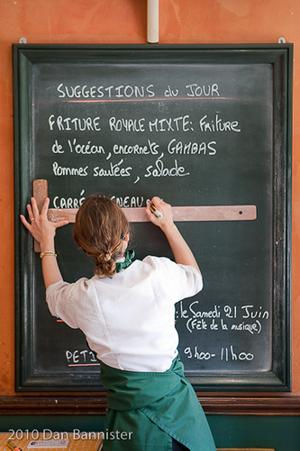 SUGGESTIONS du JOUR
FRITURE ROYALE MIXTE: Friture
de l'océan, encornets, GAMBAS
Pommes sautées, salade
CARRÉ
: le Samedi 21 Juin
(Fête de la musique)
9h00-11h00
2010 Dan Bannister